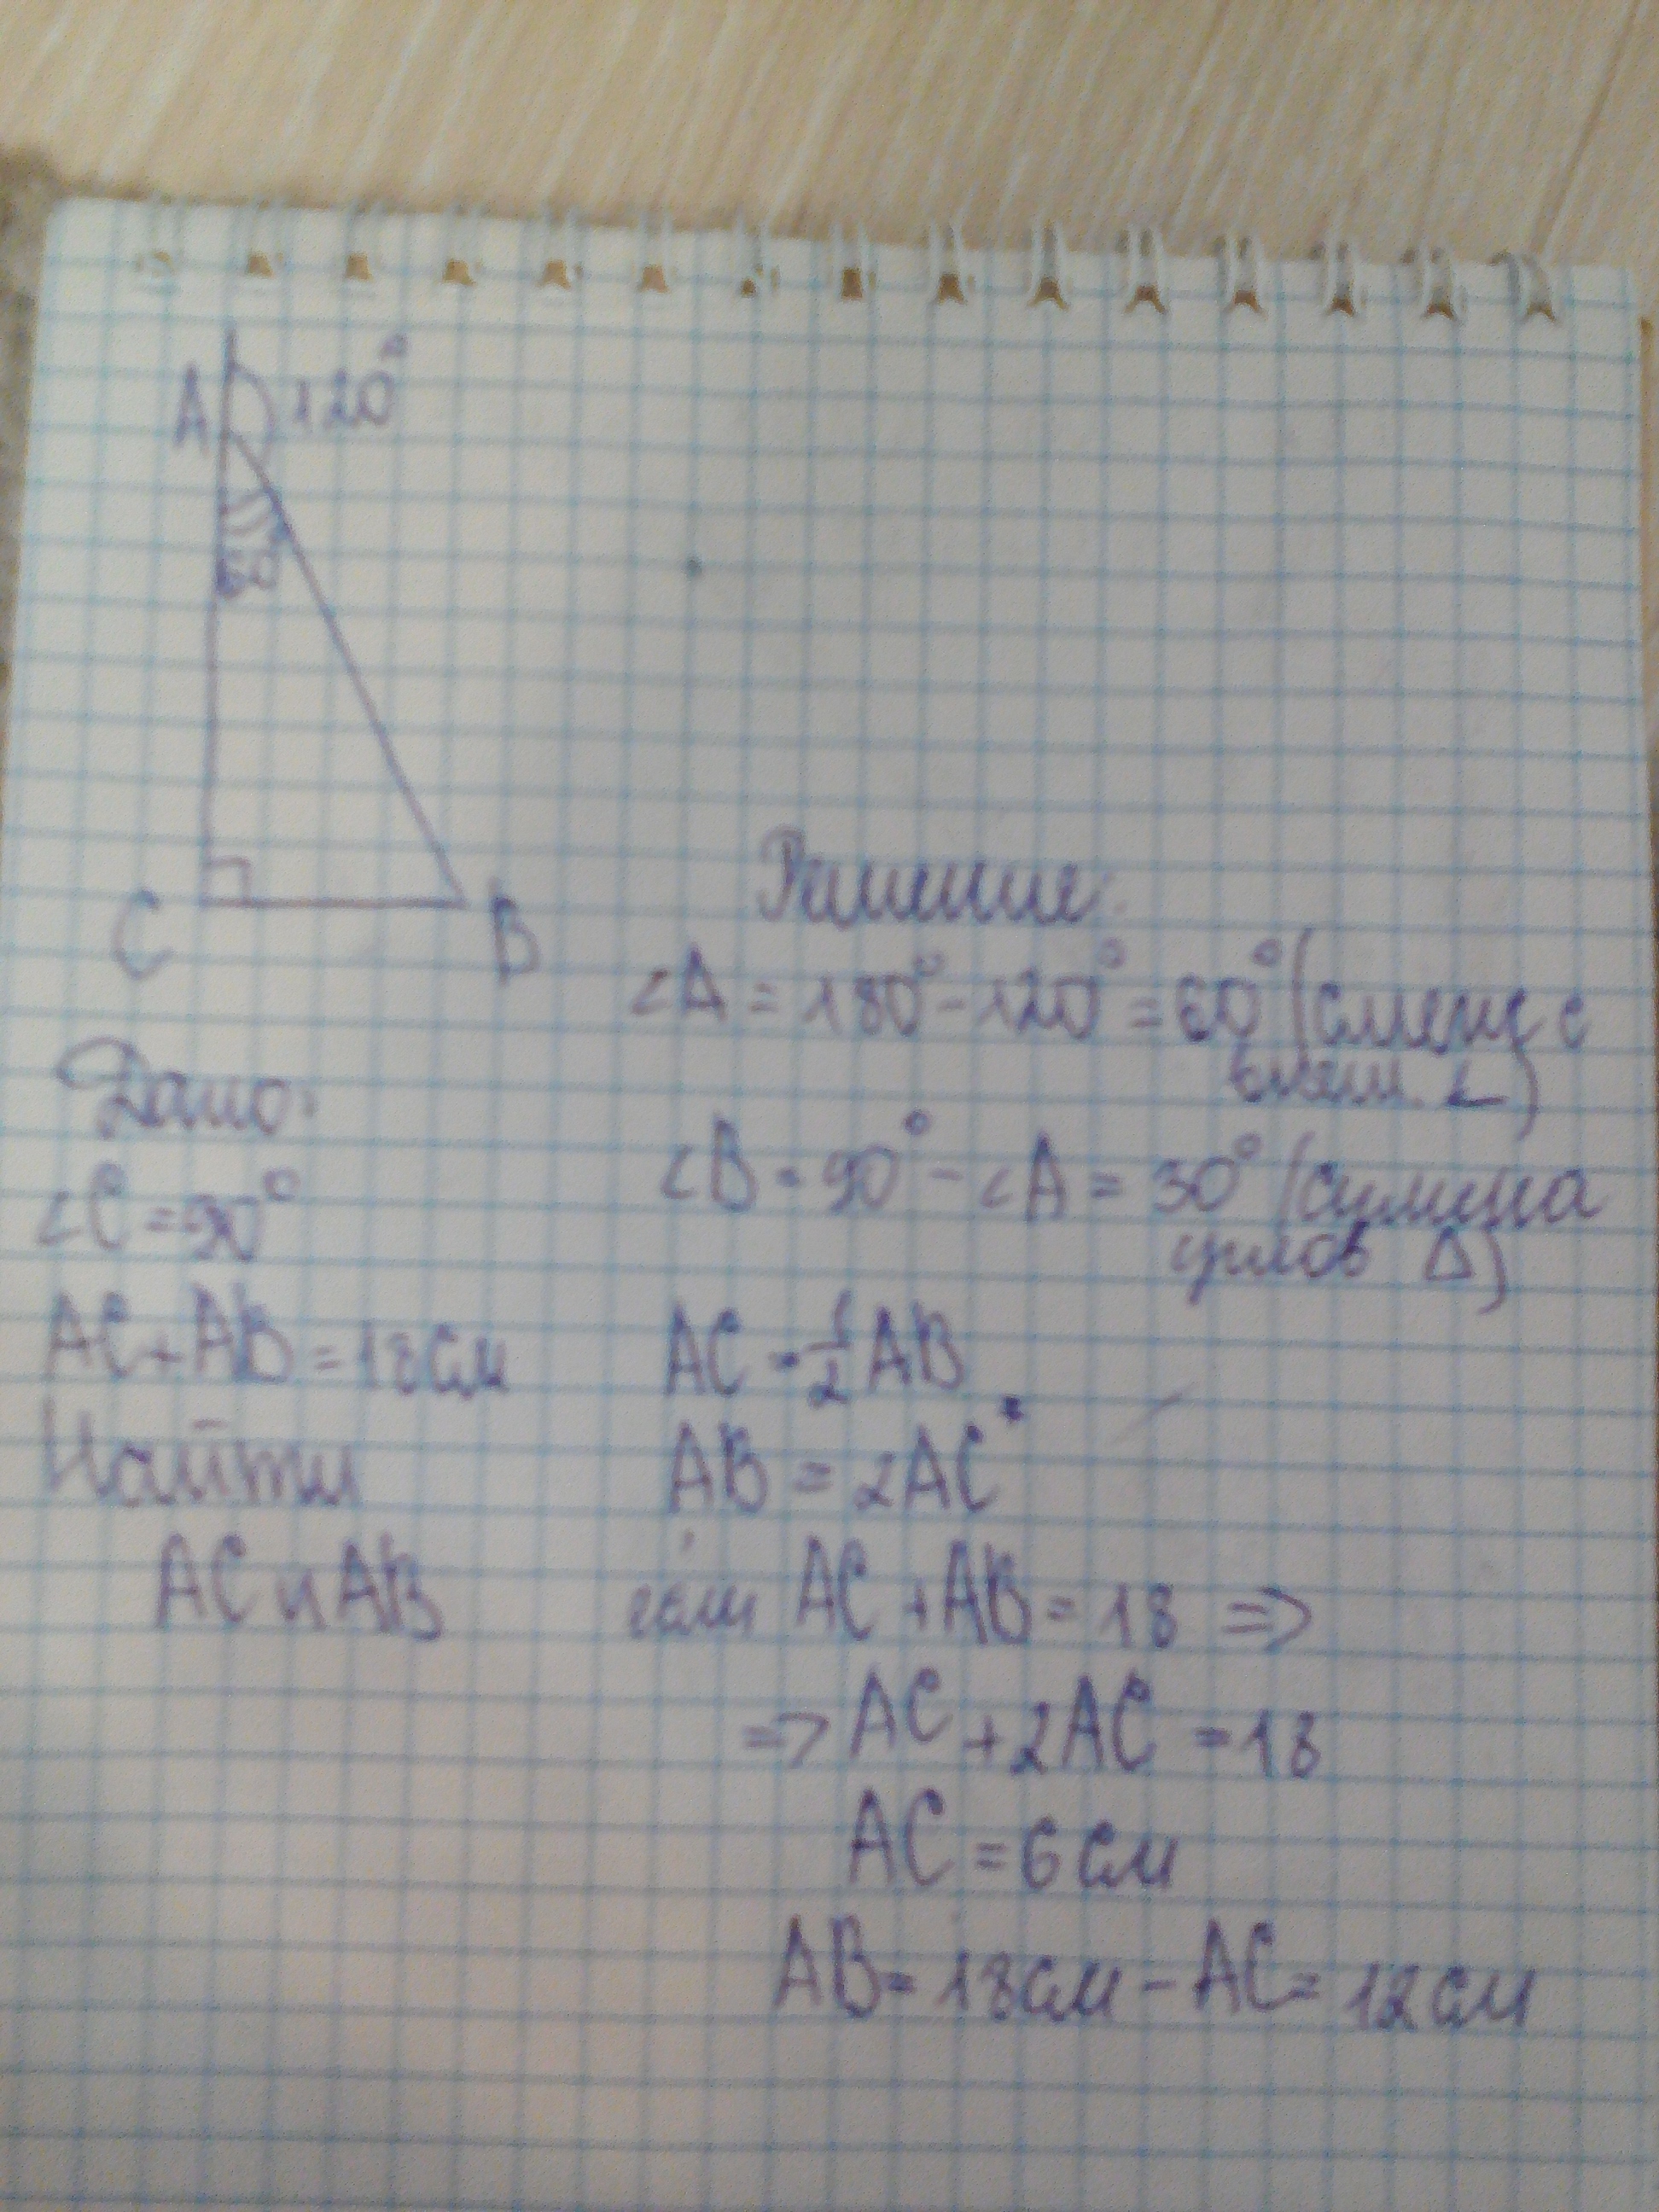 A 120°
60
C B
Дано:
∠C = 90°
AC + AB = 18 см
Найти
AC и AB
Решение:
∠A = 180° - 120° = 60° (смеж с
внеш. ∠)
∠B = 90° - ∠A = 30° (сумма
углов Δ)
AC = 1/2 AB
AB = 2AC
если AC + AB = 18 =>
=> AC + 2AC = 18
AC = 6 см
AB = 18 см - AC = 12 см